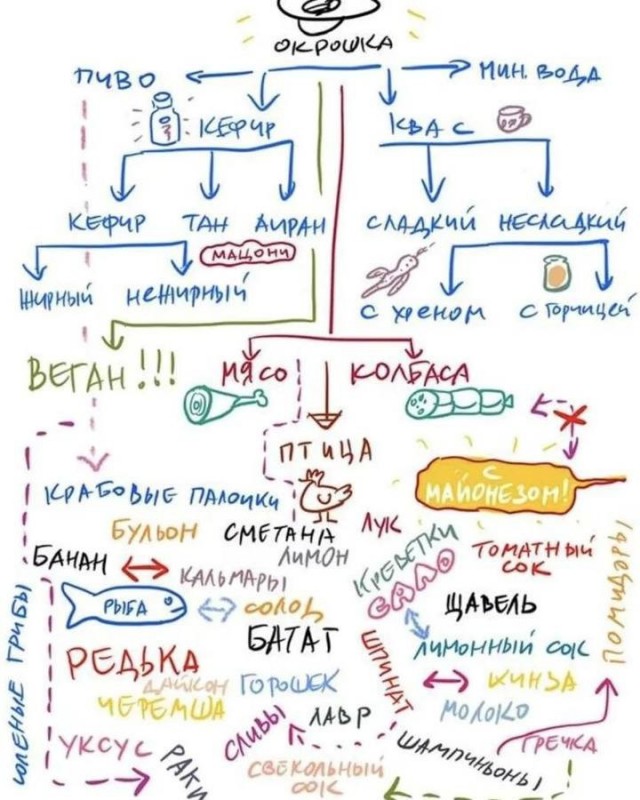 ОКРОШКА
ПИВО
МИН. ВОДА
КЕФИР
КВАС
КЕФИР ТАН АИРАН
СЛАДКИЙ НЕСЛАДКИЙ
МАЦОНИ
ЖИРНЫЙ НЕЖИРНЫЙ
С ХРЕНОМ С ГОРЧИЦЕЙ
ВЕГАН!!!
МЯСО
КОЛБАСА
ПТИЦА
С
МАЙОНЕЗОМ!
КРАБОВЫЕ ПАЛОЧКИ
БУЛЬОН
СМЕТАНА
ЛУК
ЛИМОН
БАНАН
КАЛЬМАРЫ
КРЕВЕТКИ
ТОМАТНЫЙ
СОК
САЛО
РЫБА
СОЛОД
ЩАВЕЛЬ
ПОМИДОРЫ
БАТАТ
ЛИМОННЫЙ СОК
РЕДЬКА
ШПИНАТ
ДАЙКОН
ГОРОШЕК
КИНЗА
ЧЕРЕМША
ЛАВР
МОЛОКО
СОЛЕНЫЕ ГРИБЫ
УКСУС
РАКИ
СЛИВЫ
ШАМПИНЬОНЫ
ГРЕЧКА
СВЕКОЛЬНЫЙ
СОК